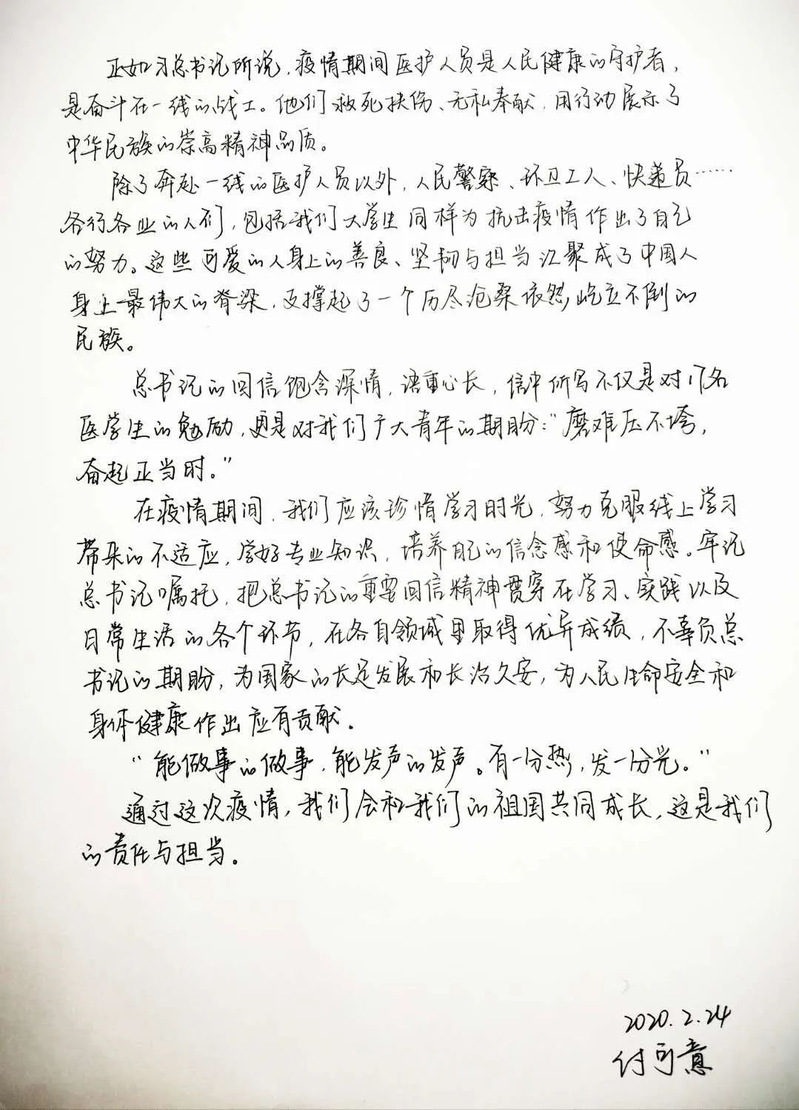 正如习总书记所说，疫情期间医护人员是人民健康的守护者，
是奋斗在一线的战士。他们救死扶伤、无私奉献，用行动展示了
中华民族的崇高精神品质。
除了奔赴一线的医护人员以外，人民警察、环卫工人、快递员……
各行各业的人们，包括我们大学生同样为抗击疫情作出了自己
的努力。这些可爱的人身上的善良、坚韧与担当汇聚成了中国人
身上最伟大的脊梁，支撑起了一个历尽沧桑依然屹立不倒的
民族。
总书记的回信饱含深情，语重心长，信中所写不仅是对17名
医学生的勉励，更是对我们广大青年的期盼：“磨难压不垮，
奋起正当时。”
在疫情期间，我们应该珍惜学习时光，努力克服线上学习
带来的不适应，学好专业知识，培养自己的信念感和使命感。牢记
总书记嘱托，把总书记的重要回信精神贯穿在学习、实践以及
日常生活的各个环节，在各自领域里取得优异成绩，不辜负总
书记的期盼，为国家的长足发展和长治久安，为人民生命安全和
身体健康作出应有贡献。
“能做事的做事，能发声的发声。有一分热，发一分光。”
通过这次疫情，我们会和我们的祖国共同成长，这是我们
的责任与担当。
2020.2.24
付可意